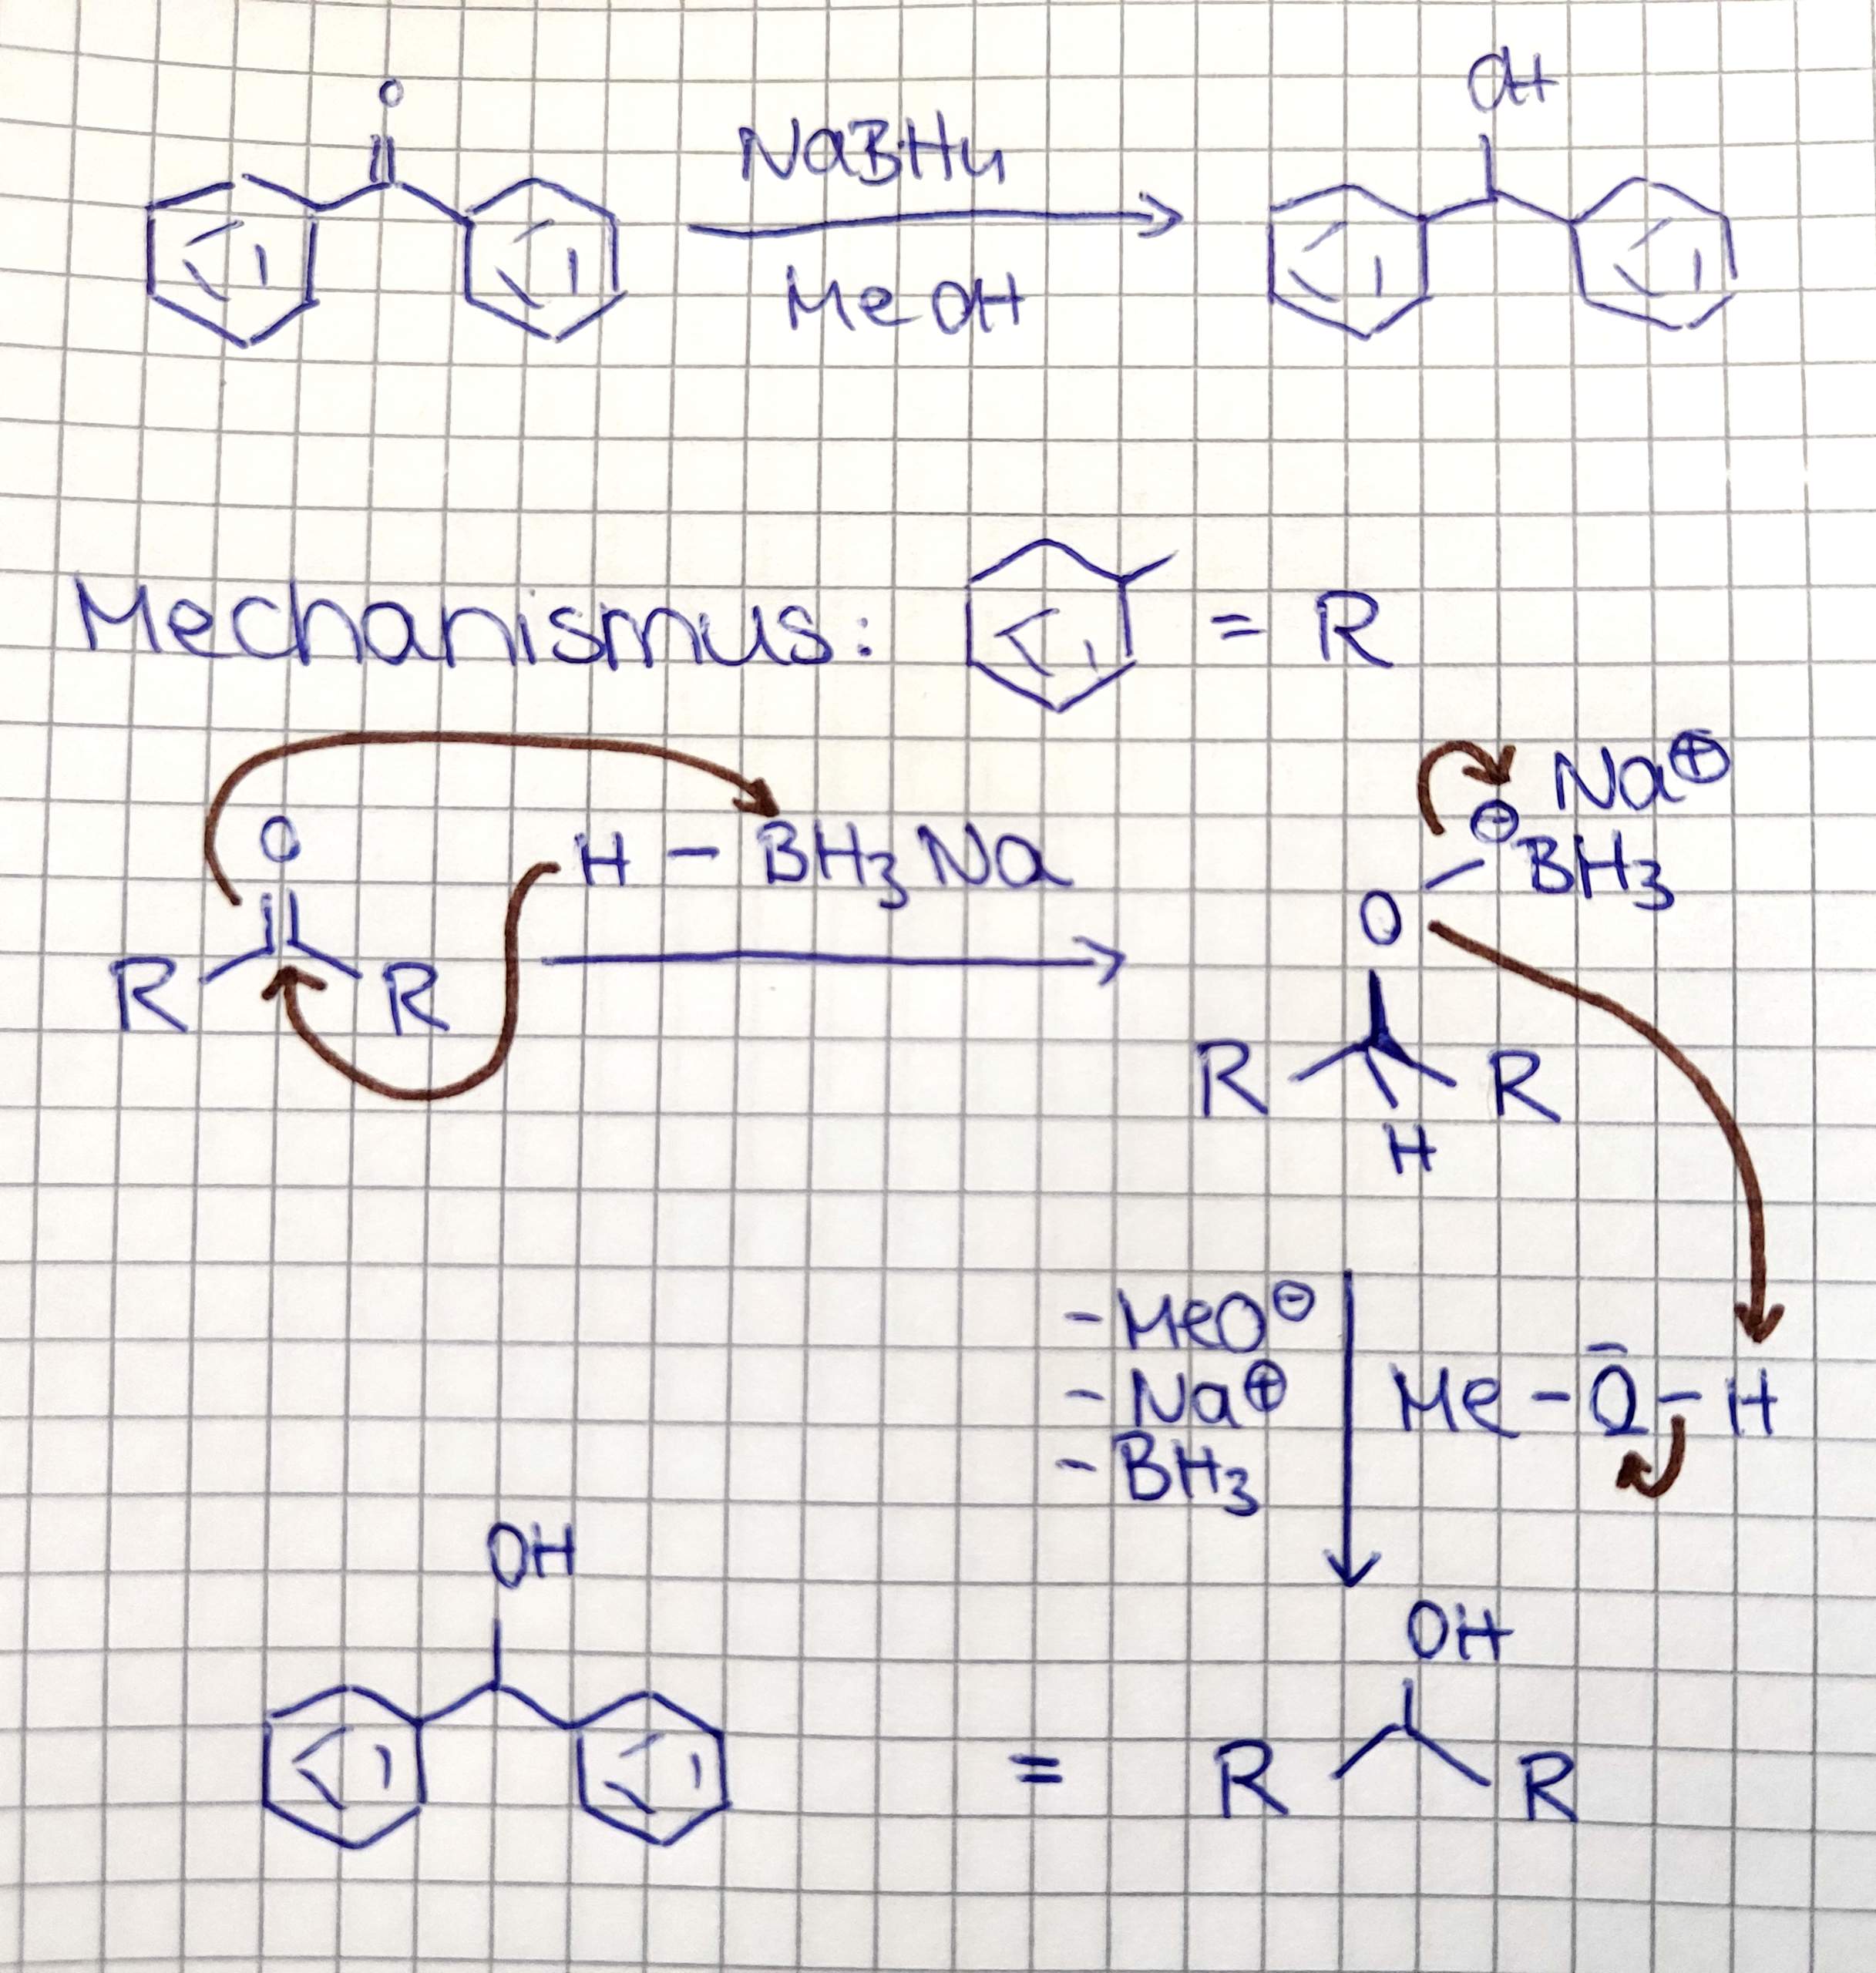 O
OH
NaBH4
MeOH
Mechanismus: = R
O
H - BH3 Na
R R
Na⊕
⊖
BH3
O
R R
H
- MeO⊖
- Na⊕
- BH3
Me - O - H
OH
OH
= R R